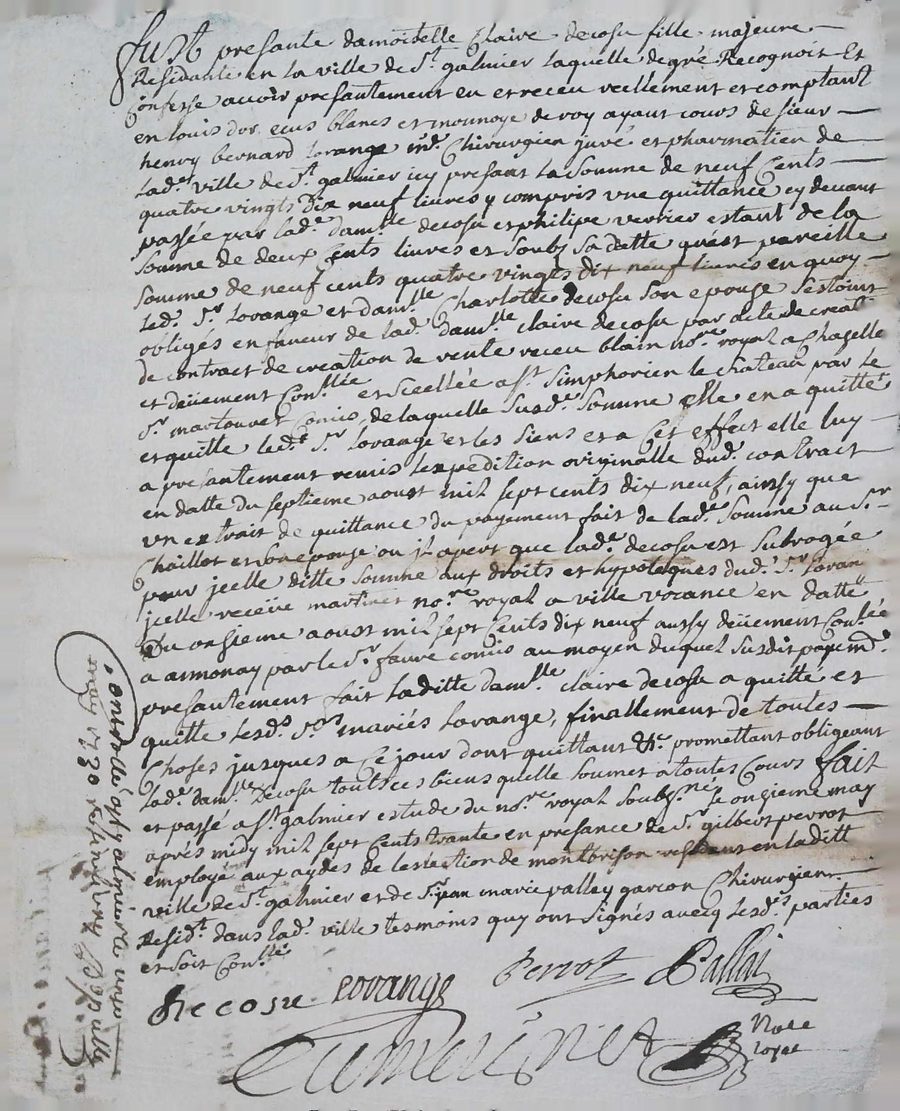 Fust presante damoiselle Claire decosu fille majeure
Residante en la ville de St galmier laquelle de gré Recognoit Et
Confesse avoir presantement eu et receu reellement et comptant
en louis dor ecus blancs et monnoye de roy ayant cours de sieur
henry bernard lorange md. Chirurgien juré et pharmatien de
lade. ville de St galmier icy presant la Somme de neuf Cents
quatre vingts dix neuf livres y compris une quittance cy devant
passée par lade. damlle decosu et philipe verrier estant de la
Somme de deux Cents livres et Soubz Sa datte quest pareille
Somme de neuf cents quatre vingts dix neuf livres en quoy
led. Sr lorange et damlle Charlotte decosu Son epouse Sestoint
obligés en faveur de lad. damlle claire decosu par acte de creaon
de contract de creation de rente receu blain nore. royal a Chazelle
et deüement Conllée et Scellée a St Simphorien le chateau par le
Sr martouret Comis, de laquelle Susde. Somme elle en a quitté
et quitte ledt. Sr lorange et les Siens et a Cet effect elle luy
a presantement remis lexpedition originalle dud. contract
en datte du Septieme aoust mil Sept cents dix neuf, ainsy que
un extrait de quittance du payement fait de lade. Somme au Sr
Chaillot et Son epouse ou jl apert que lade. decosu est Subrogée
pour jcelle ditte Somme aux droits et hypoteques dud. Sr loran
jcelle receüe martinet nore. royal a ville vocance en datte
Du onsieme aoust mil Sept Cents dix neuf aussy deüement Conlée
a annonay par le Sr faure comis au moyen duquel Susdit payemt.
presantement fait laditte damlle claire decosu a quitté et
quitte lesds. Srs mariés lorange, finallement de toutes
Choses jusques a Ce jour dont quittant &c. promettant obligeant
lade. damlle Decosu touts ces biens quelle Soumet a toutes Cours fait
et passé a St galmier estude du nore. royal Soubzne. le onzieme may
après midy mil Sept Cents trante en presance de Sr gilbert perrot
employé aux aydes de leslection de montbrison residant en laditt
ville de St galmier et de Sr jean marie palley garcon Chirurgien
Residt. dans lade. ville tesmoins quy ont Signés avecq lesds. parties
et Soit Conllé
Decosu lorange Perrot Pallai
Nore
royal
may 1730